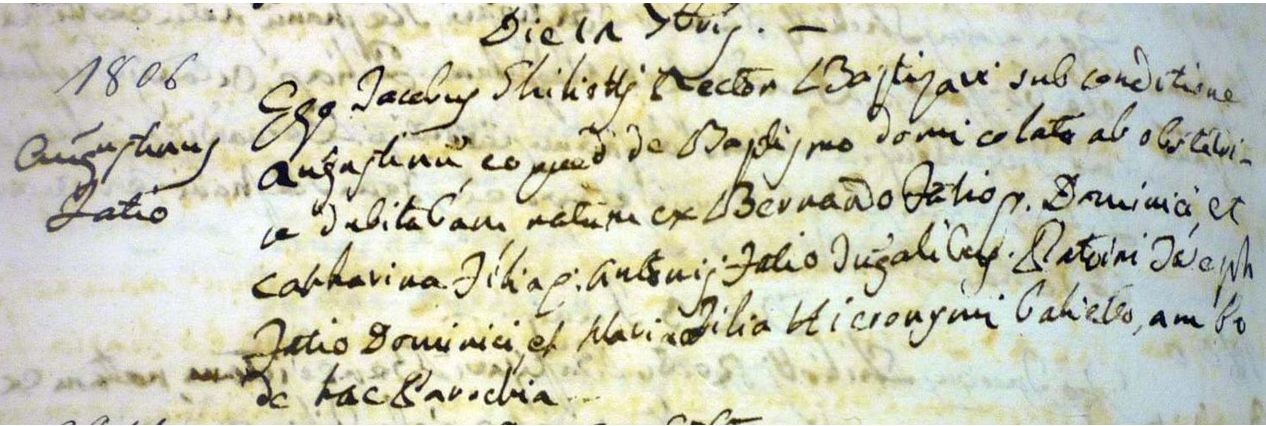 Die 12 9bris. —
1806
Augustinus
Fatio
Ego Jacobus Rector Baptizavi sub conditione
Augustinū eo quod de Baptismo domi colato ab obstetri-
ce dubitabam natum ex Bernardo Fatio q. Dominici et
Catharina Filia q. Antonij Fatio Jugalibus. Patrini Joseph
Fatio Dominici, et Marina Filia Hieronymi ambo
de hac Parochia